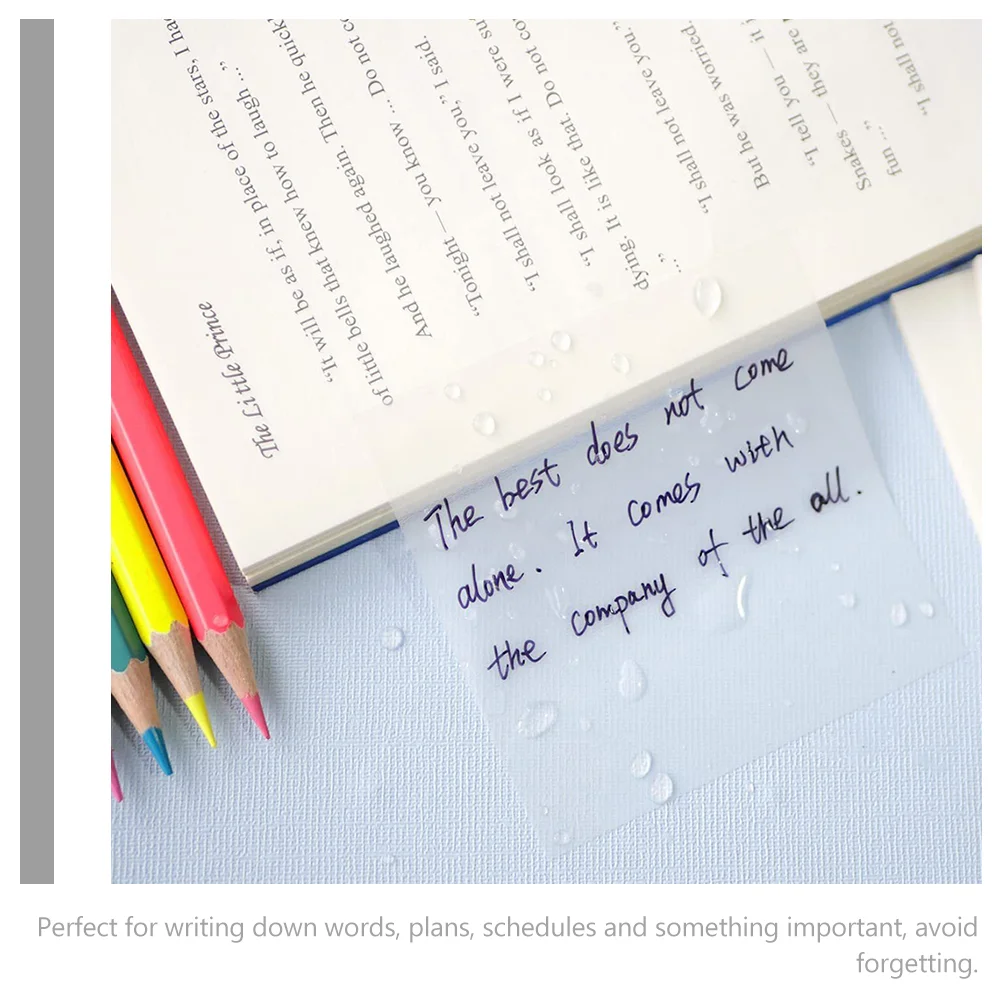 The Little Prince
"It will be as if, in place of the stars, I had
of little bells that knew how to laugh ..."
And he laughed again. Then he quickly
"Tonight — you know ... Do not co
"I shall not leave you," I said.
"I shall look as if I were su
dying. It is like that. Do not co
..."
"I shall not leave you."
But he was worried.
"I tell you — it i
Snakes — they are
fun ..."
"I shall not
The best does not come
alone. It comes with
the company of the all.
Perfect for writing down words, plans, schedules and something important, avoid
forgetting.